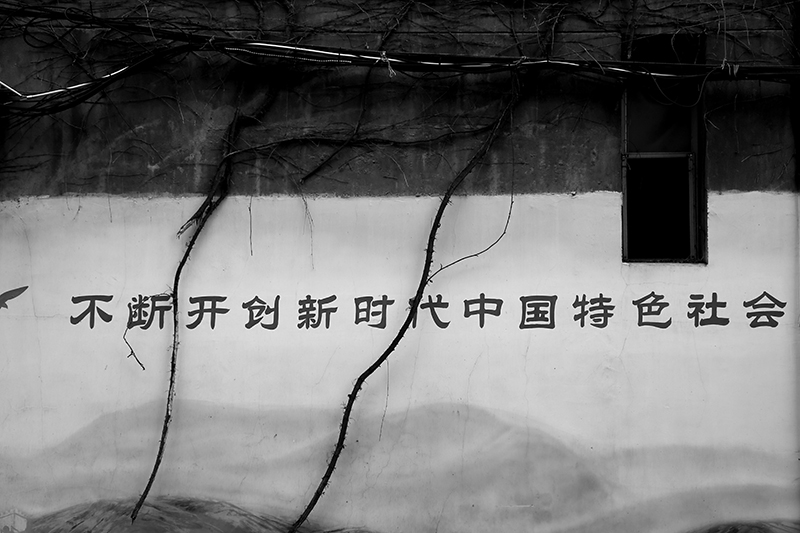 不断开创新时代中国特色社会